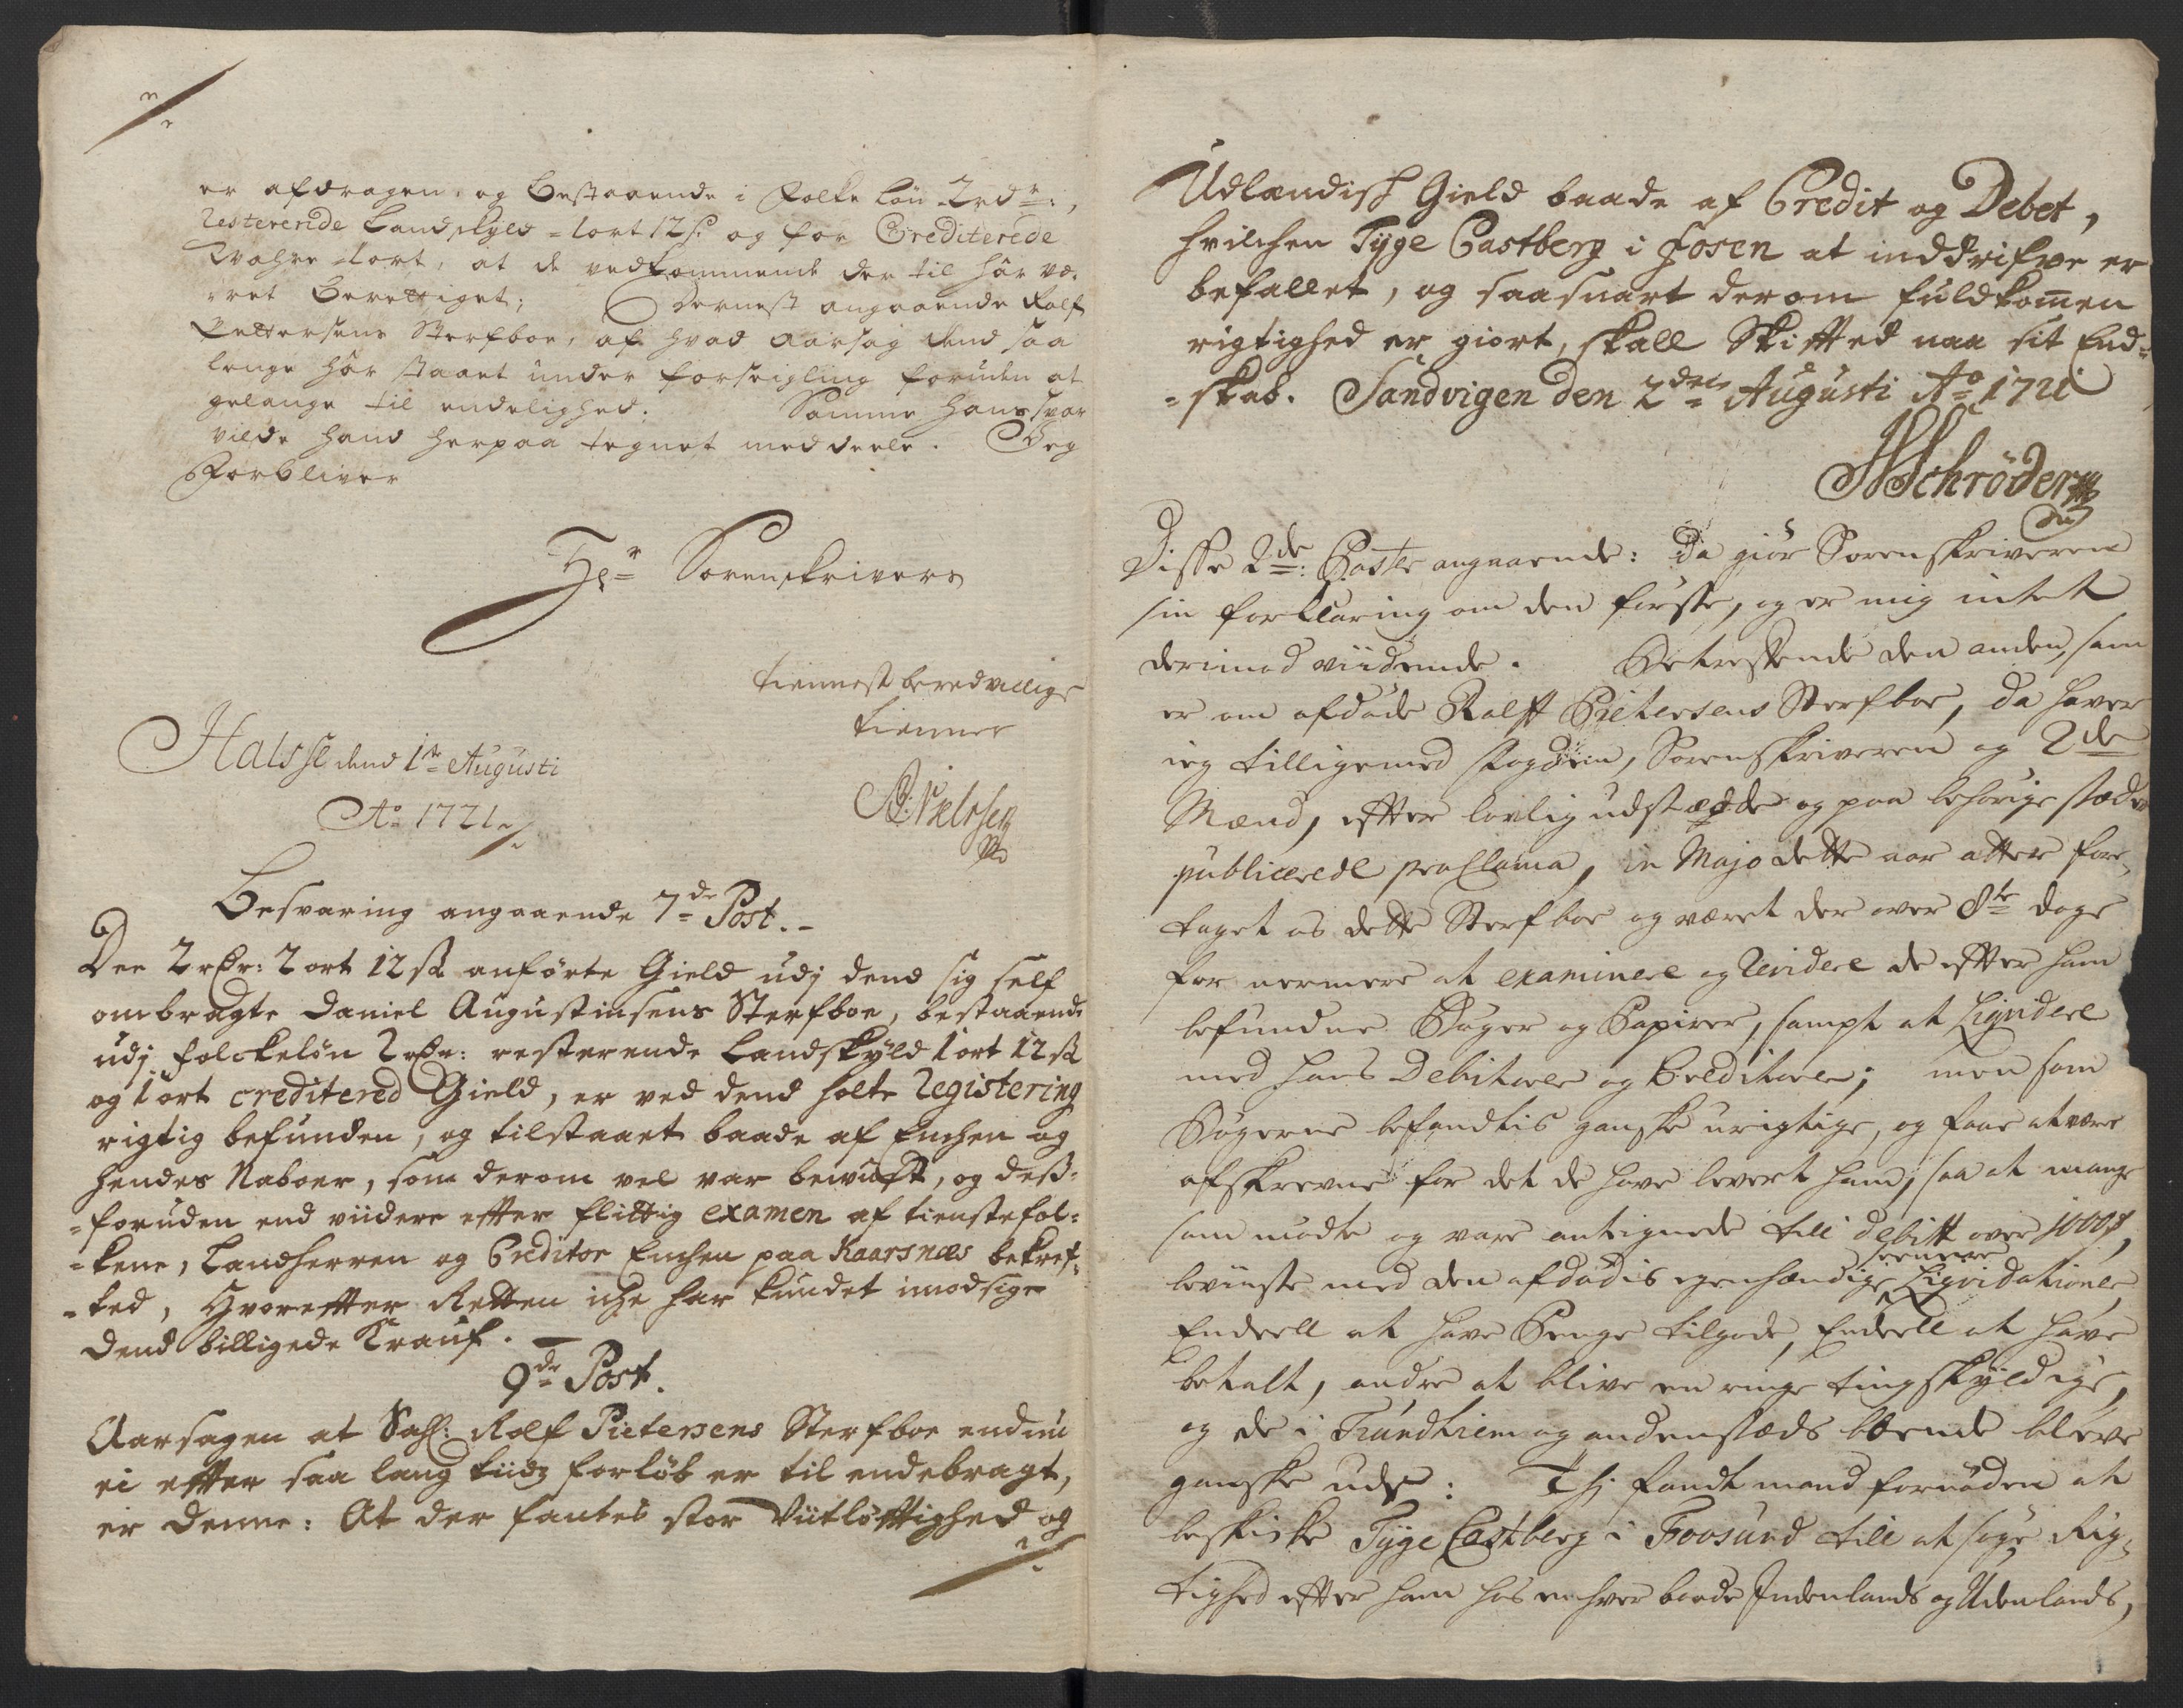 er afdragen, og Bestaaende i Folke løn 2rdr:,
Resterende Landskyld =1ort 12 s: og for Crediterede
Wahre 1ort, at de vedkommende der til har væ-
-ret Berettiget; Dernest angaaende Rolf
Pettersens Sterfboe, af hvad aarsag dend saa
lenge har staaet under forseigling foruden at
gelange til endelighed. Samme hans svar
vilde hand herpaa tegnet meddeele. Jeg
Forbliver
Hr Sorenskrivers
tiennestberedvillige
tienner
Halsse dend 1te Augusti
Ao 1721
Besvaring angaaende 7de Post.-
Dee 2 rdr: 2 ort 12 sk anførte Gield udj dend sig self
ombragte Daniel Augustinsens Sterfboe, bestaaende
udj folckeløn 2 rdr: resterende Landskyld 1 ort 12 sk
og 1 ort creditered Gield, er ved dend holte Registering
rigtig befunden, og tilstaaet baade af Enchen og
hendes Naboer, som derom vel var bewust, og dess-
=foruden end viidere efter flittig examen af tienstefol=
=kene, Landherren og Creditor Enchen paa Kaarsnæs bekref=
=ted, Hvorefter Retten iche har kundet imodsige
dend billigede Krauf.
9de Post.
Aarsagen at Sahl: Rolf Pietersens Sterfboe endnu
ei efter saa lang tiidz forløb er til endebragt,
er denne: At der fantes stor Viitløftighed og
Udlændisch Gield baade af Credit og Debet,
hvilchen Tyge Castberg i Fosen at inddrifve er
befallet, og saasnart derom fuldkommen
rigtighed er giort, skall Skifted naa sit End=
=skab. Sandvigen den 2den Augusti Ao 1721
Schrøder
Disse 2de: Poster angaaende: Da giør Sorenskriveren
sin forklaring om den første, og er mig intet
derimod viidende. Betreffende den anden, som
er om afdøde Rolff Pietersens Sterfboe, da haver
ieg tilligemed fogden, Sorenskriveren og 2de
Mænd, efter lovlig udstædde og paa behørige stæder
publicerede proclama, in Majo dette aar atter fore-
taget os dette Sterfboe og været der over 8te dage
for nermere at examinere og Revidere de efter ham
befundne Bøger og Papirer, sampt at Liqvidere
med hans Debitorer og Creditorer; men som
Bøgerne befandtis ganske urigtige, og faae at være
afskrevne for det de have levert ham, saa at mange
som mødte og vare antegnede till debitt over 100 rdr,
beviiste med den afdødis egenhændige seenere Liqvidationer
Endeell at have Penge tilgode, Endeell at have
betalt, andre at blive en ringe ting skyldige,
og de i Trundhiem og andenstæds boende bleve
ganske ude: Thj fandt mand fornøden at
beskicke Tyge Castberg i Foosund till at søge Rig-
tighed efter ham hos enhver baade Indenlands og Udenlands,